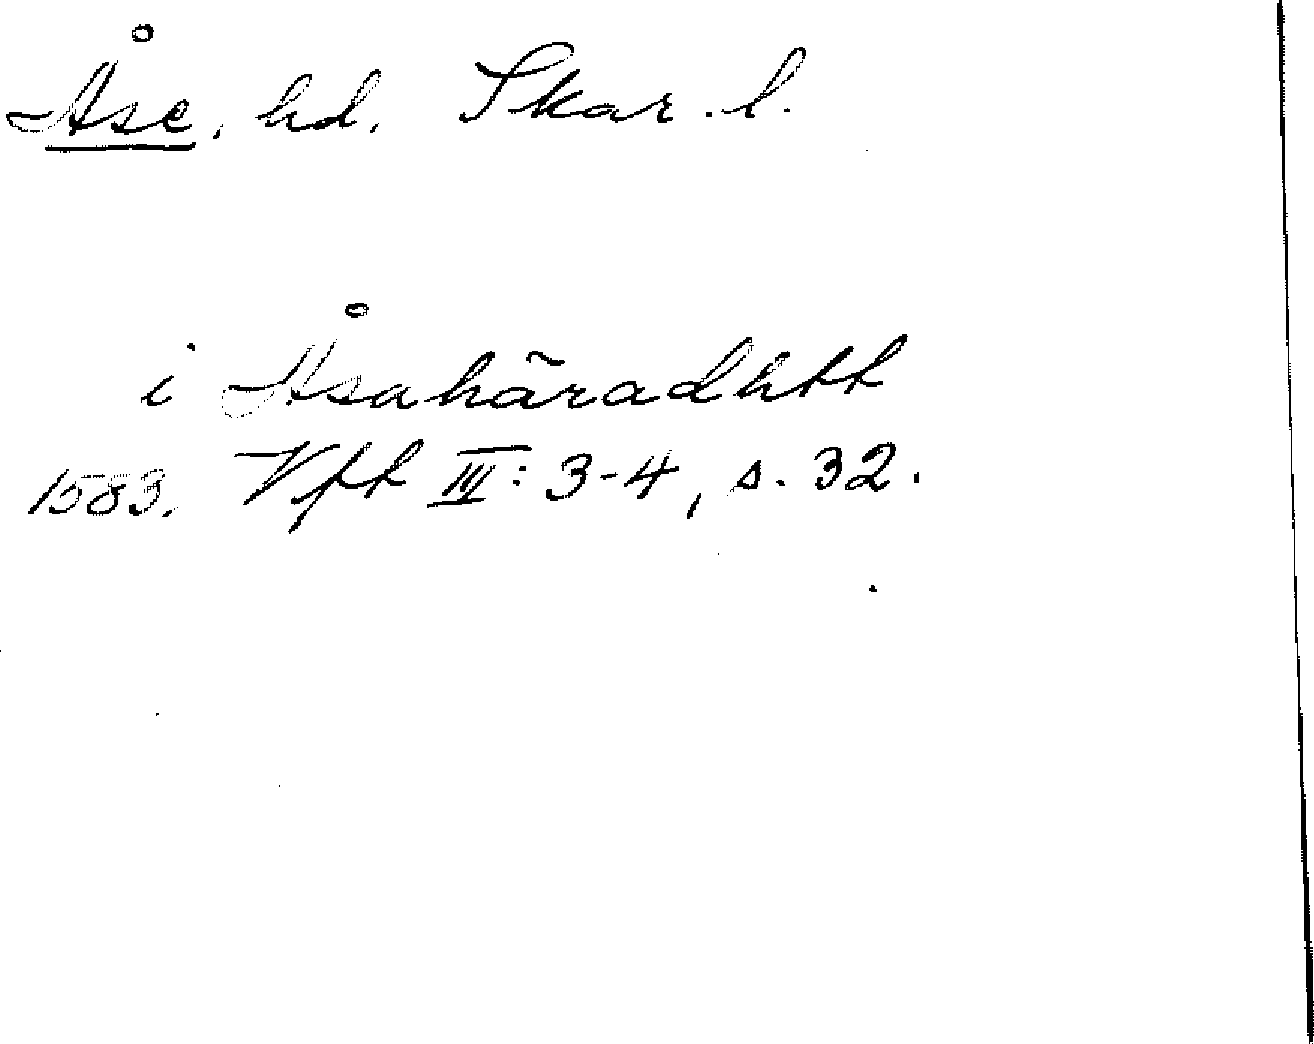 Åse. hd. Skar. l.
i Åsahäradhtt
1583. Vft III: 3-4, s. 32.